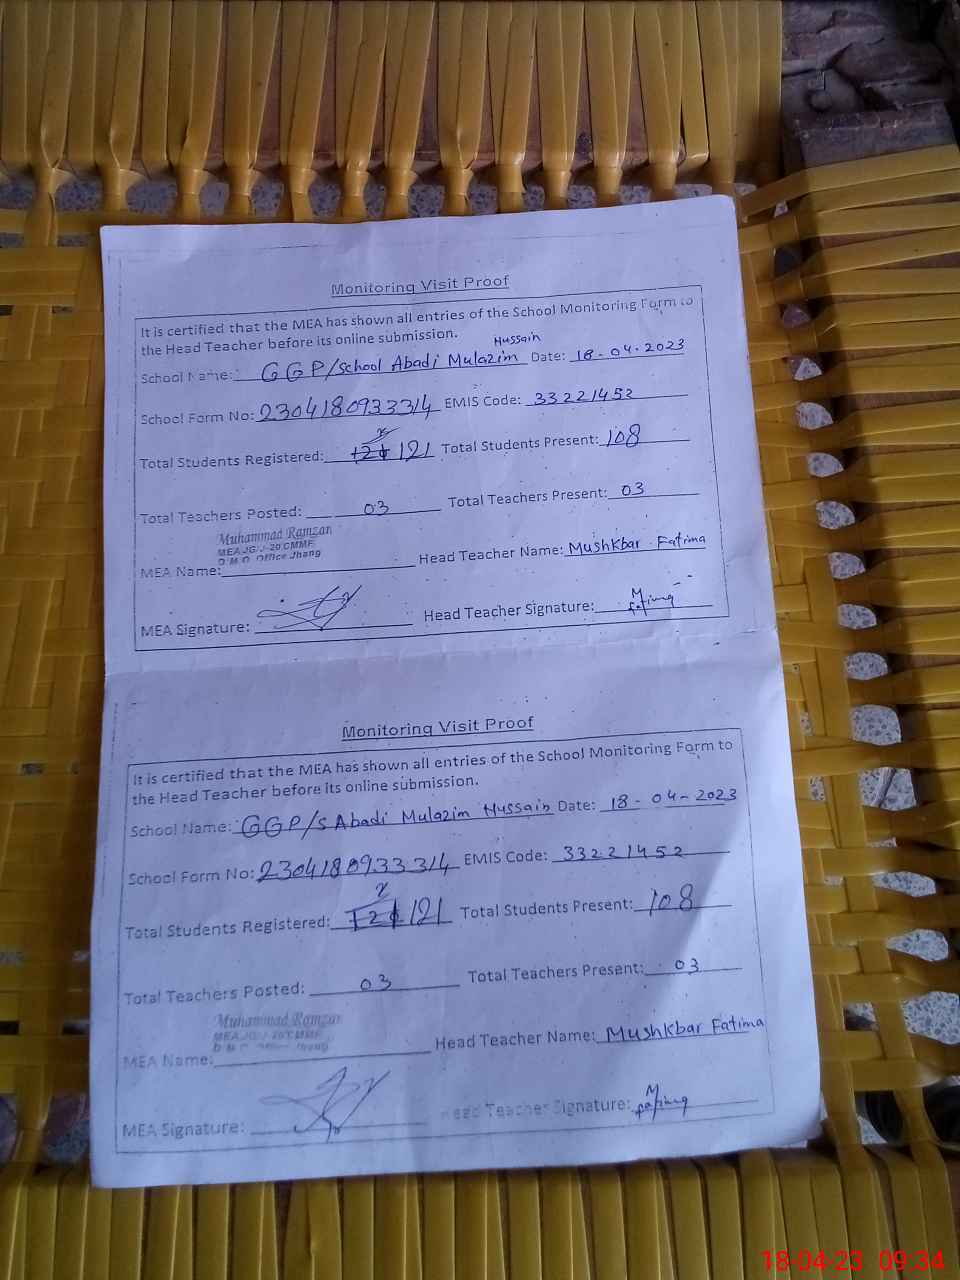 Monitoring Visit Proof
It is certified that the MEA has shown all entries of the School Monitoring Form to
the Head Teacher before its online submission.
School Name: GGP/School Abadi Mulazim Hussain Date: 18-04-2023
School Form No: 230418093331/4 EMIS Code: 33221452
Total Students Registered: 121 Total Students Present: 108
Total Teachers Posted: 03 Total Teachers Present: 03
Muhammad Ramzan
D.M.O. Office Jhang
MEA Name: Head Teacher Name: Mushkbar Fatima
MEA Signature: Head Teacher Signature: M
Monitoring Visit Proof
It is certified that the MEA has shown all entries of the School Monitoring Form to
the Head Teacher before its online submission.
School Name: GGP/S Abadi Mulazim Hussain Date: 18-04-2023
School Form No: 23041809333/4 EMIS Code: 33221452
Total Students Registered: 121 Total Students Present: 108
Total Teachers Posted: 03 Total Teachers Present: 03
Muhammad Ramzan
MEA Name: Head Teacher Name: Mushkbar Fatima
MEA Signature: Head Teacher Signature: M
18-04-23 09:34